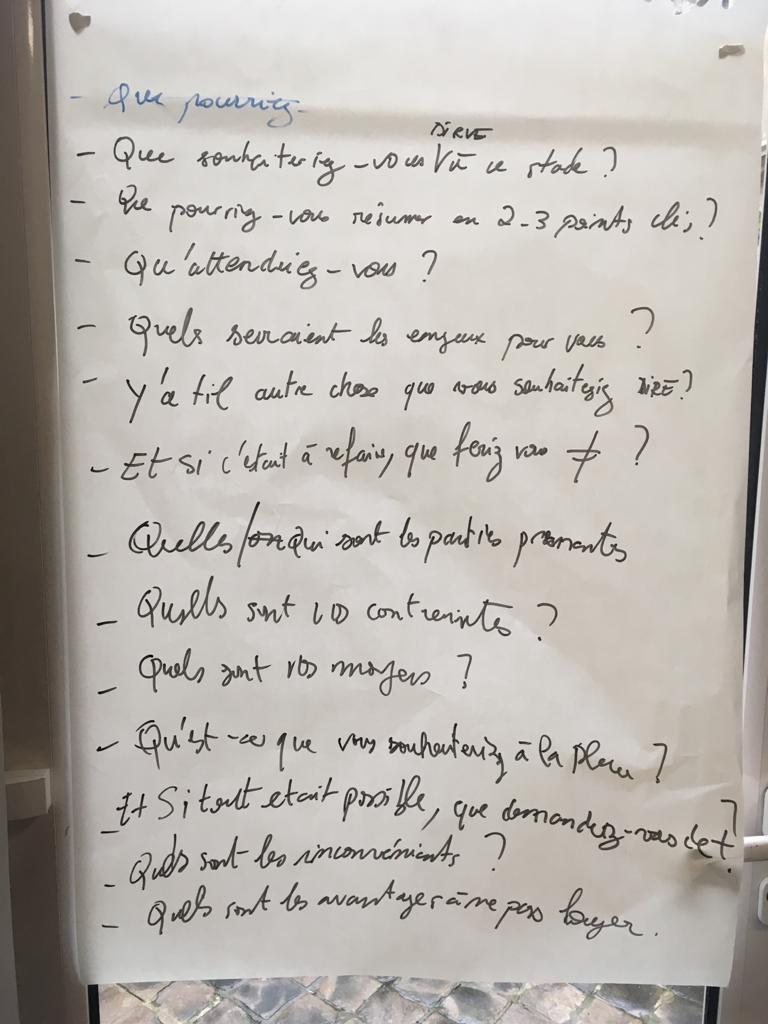 - Que pourriez-
DIRE
- Que souhaiteriez-vous à ce stade ?
- Que pourriez-vous résumer en 2-3 points clés ?
- Qu'attendriez-vous ?
- Quels seraient les enjeux pour vous ?
- Y'a til autre chose que vous souhaiteriez DIRE ?
- Et si c'était à refaire, que feriez vous ≠ ?
- Quelles / qui sont les parties prenantes
- Quells sont vos contraintes ?
- Quels sont vos moyens ?
- Qu'est-ce que vous souhaiteriez à la place ?
- Et Si tout etait possible, que demandez-vous de + ?
- Quels sont les inconvénients ?
- Quels sont les avantages à ne pas bouger.